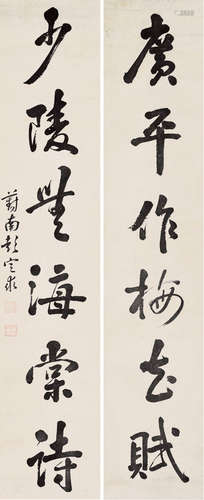 廣平作梅花賦
少陵無海棠詩
南彭定求